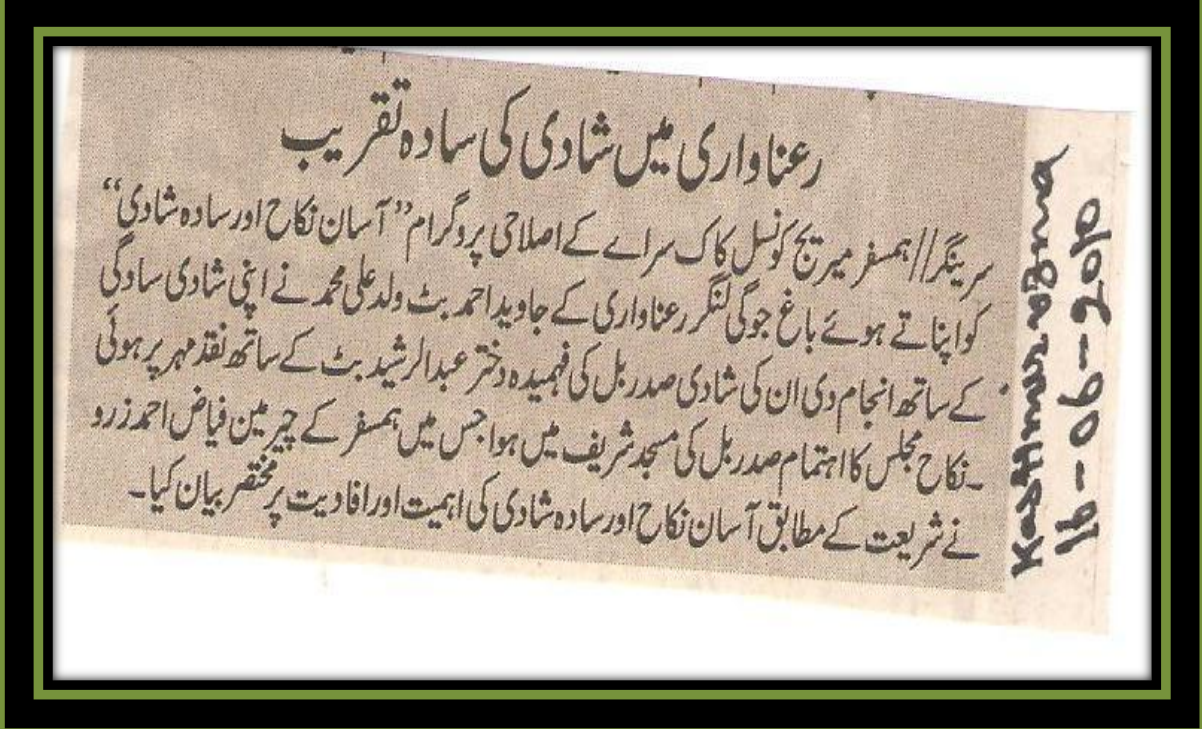 رعناواری میں شادی کی سادہ تقریب
سرینگر//ہمسفر میریج کونسل کاک سرائے کے اصلاحی پروگرام ”آسان نکاح اور سادہ شادی“
کو اپناتے ہوئے باغ جوگی لنگر رعناواری کے جاوید احمد بٹ ولد علی محمد نے اپنی شادی سادگی
کے ساتھ انجام دی ان کی شادی صدربل کی فہمیدہ دختر عبدالرشید بٹ کے ساتھ نقد مہر پر ہوئی
۔نکاح مجلس کا اہتمام صدربل کی مسجد شریف میں ہوا جس میں ہمسفر کے چیرمین فیاض احمد زرو
نے شریعت کے مطابق آسان نکاح اور سادہ شادی کی اہمیت اور افادیت پر مختصر بیان کیا۔
16-06-2010